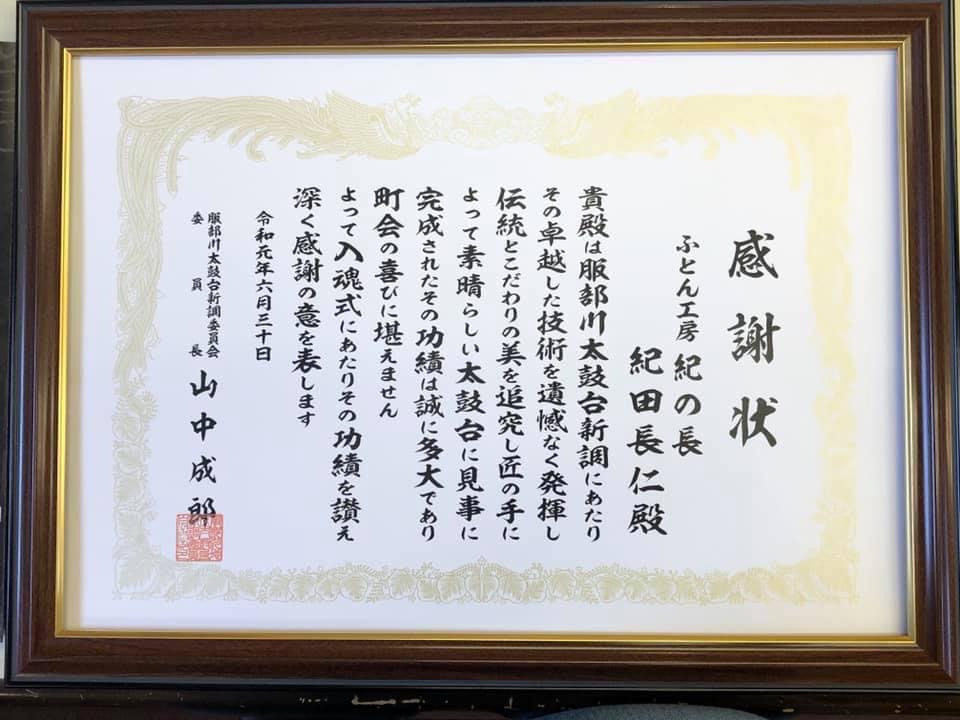 感謝状
ふとん工房 紀の長
紀田長仁殿
貴殿は服部川太鼓台新調にあたり
その卓越した技術を遺憾なく発揮し
伝統とこだわりの美を追究し匠の手に
よって素晴らしい太鼓台に見事に
完成されたその功績は誠に多大であり
町会の喜びに堪えません
よって入魂式にあたりその功績を讃え
深く感謝の意を表します
令和元年六月三十日
服部川太鼓台新調委員会
委員長 山中成郎